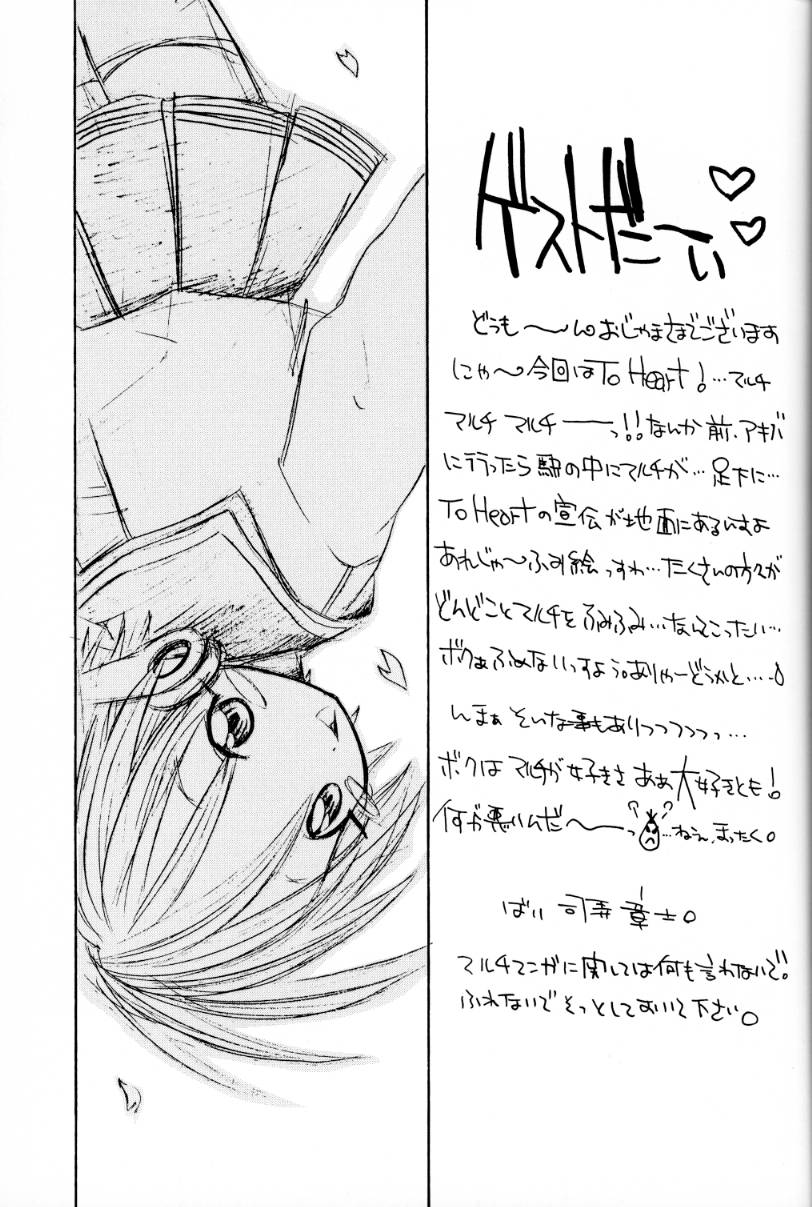 ゲストだーい♡♡
どうも〜んおじゃまさまでございます
にゃ〜今回はTo Heart!…マルチ
マルチ マルチ──っ!!なんか前、アキバ
に行ったら駅の中にマルチが…足下に…
To Heartの宣伝が地面にあるいすよ
あれじゃ〜ふみ絵っすわ…たくさんの方々が
どんどことマルチをふみふみ…なんてこったい…
ボクぁふめないっすよう。ありゃーどうかと…
んまぁ そいな事もありつつつつっ…
ボクは マルチが好きさ あぁ大好きとも!
何が悪いんだ〜──っ …ねぇ、まったく。
ばい 章士。
マルチマンガに関しては何も言わないで。
ふれないで そっとしておいて下さい。